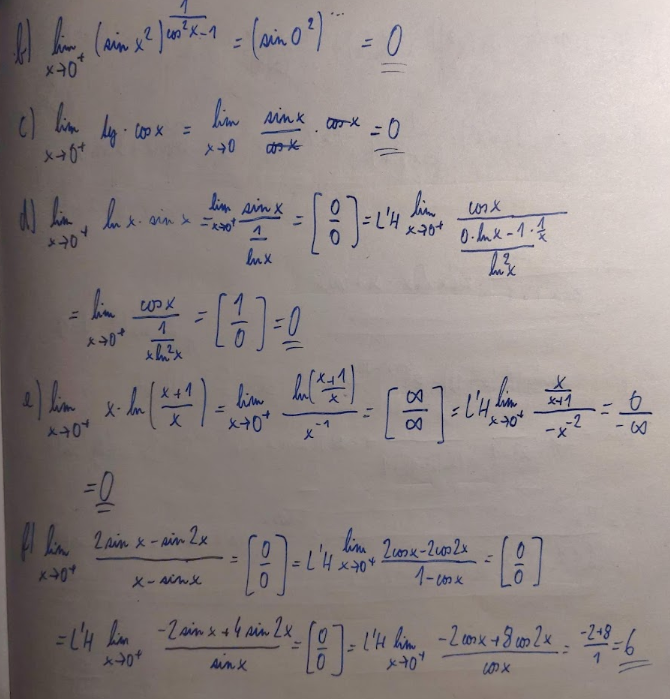 b) lim x→0⁺ (sin x²)^(1/(cos²x−1)) = (sin 0²)^... = 0
c) lim x→0⁺ tg · cos x = lim x→0 sin x / cos x · cos x = 0
d) lim x→0⁺ ln x · sin x = lim x→0⁺ sin x / (1/ln x) = [0/0] = L'H lim x→0⁺ cos x / ((0·ln x − 1·1/x)/ln²x)
= lim x→0⁺ cos x / (1/(x ln²x)) = [1/0] = 0
e) lim x→0⁺ x · ln((x+1)/x) = lim x→0⁺ ln((x+1)/x) / x⁻¹ = [∞/∞] = L'H lim x→0⁺ (x/(x+1)) / (−x⁻²) = 0/−∞
= 0
f) lim x→0⁺ (2 sin x − sin 2x)/(x − sin x) = [0/0] = L'H lim x→0⁺ (2cos x − 2cos 2x)/(1 − cos x) = [0/0]
= L'H lim x→0⁺ (−2 sin x + 4 sin 2x)/sin x = [0/0] = L'H lim x→0⁺ (−2cos x + 8 cos 2x)/cos x = (−2+8)/1 = 6